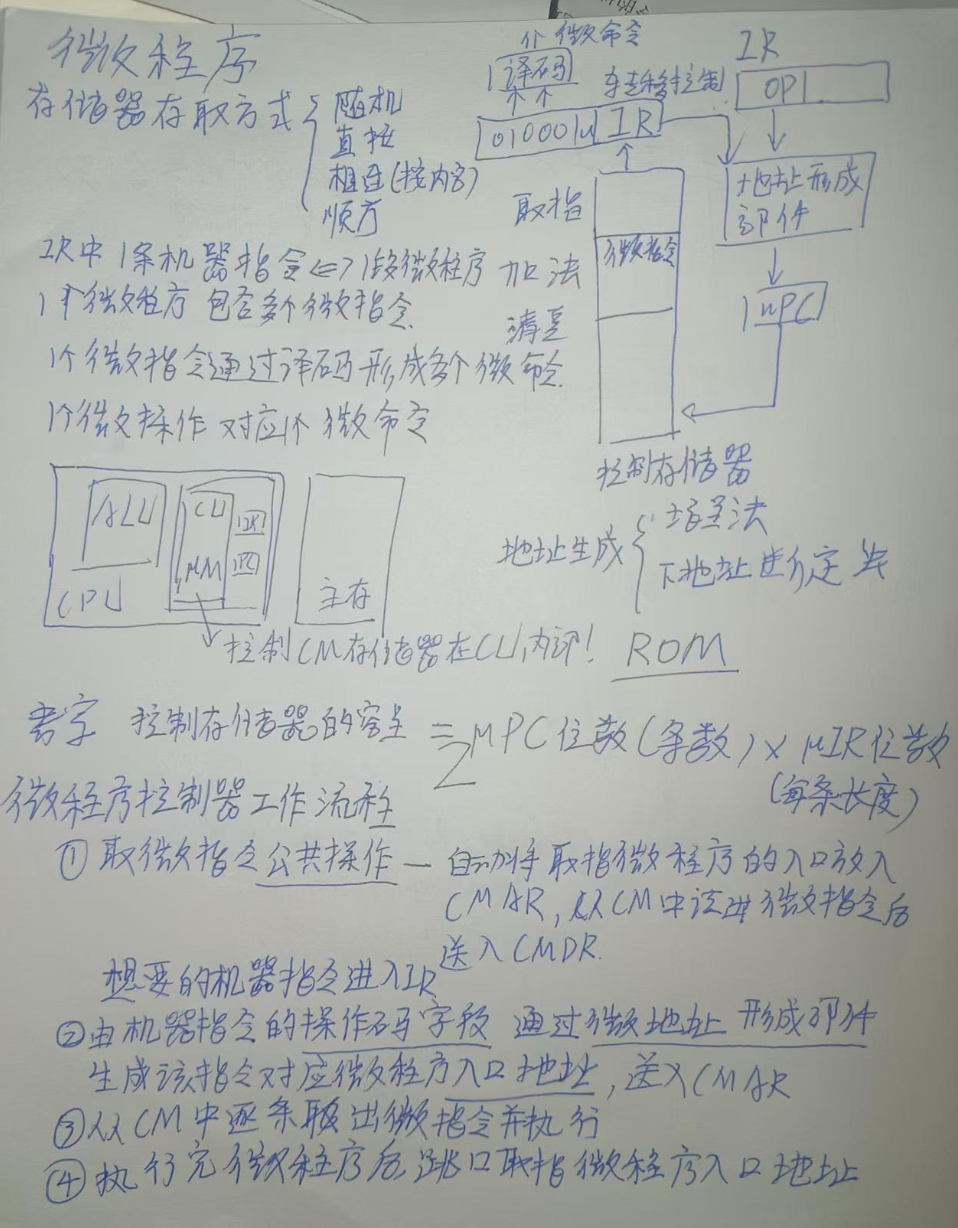 微程序
存储器存取方式
随机
直接
相连(按内容)
顺序
IR中 1条机器指令 <=> 1段微程序
1个微程序 包含多个微指令
1个微指令通过译码形成多个微命令
1个微操作 对应1个 微命令
个 微命令
译码
010001 μIR
转移控制
IR
OP
地址形成
部件
μPC
取指
加法
清零
微指令
控制存储器
地址生成
增量法
下地址
ALU
CPU
CU
μM
IR
PC
主存
控制CM存储器在CU内部! ROM
控制存储器的容量 = 2 μPC位数(条数) × μIR位数
(每条长度)
微程序控制器工作流程
① 取微指令公共操作 — 自动将取指微程序的入口放入
CMAR, 从CM中读进微指令后
送入CMDR.
想要的机器指令进入IR
② 由机器指令的操作码字段 通过微地址 形成部件
生成该指令对应微程序入口地址, 送入CMAR
③ 从CM中逐条取出微指令并执行
④ 执行完微程序后 跳回取指微程序入口地址